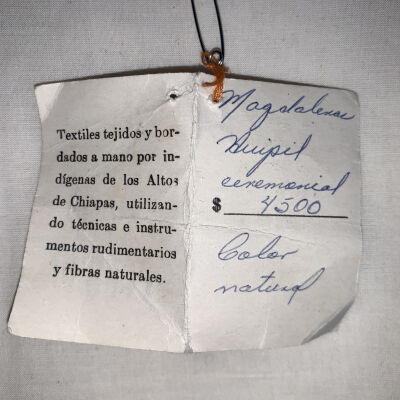 Textiles tejidos y bor-
dados a mano por in-
dígenas de los Altos
de Chiapas, utilizan-
do técnicas e instru-
mentos rudimentarios
y fibras naturales.
Magdalenas
Huipil
ceremonial
$ 4500
Color
natural